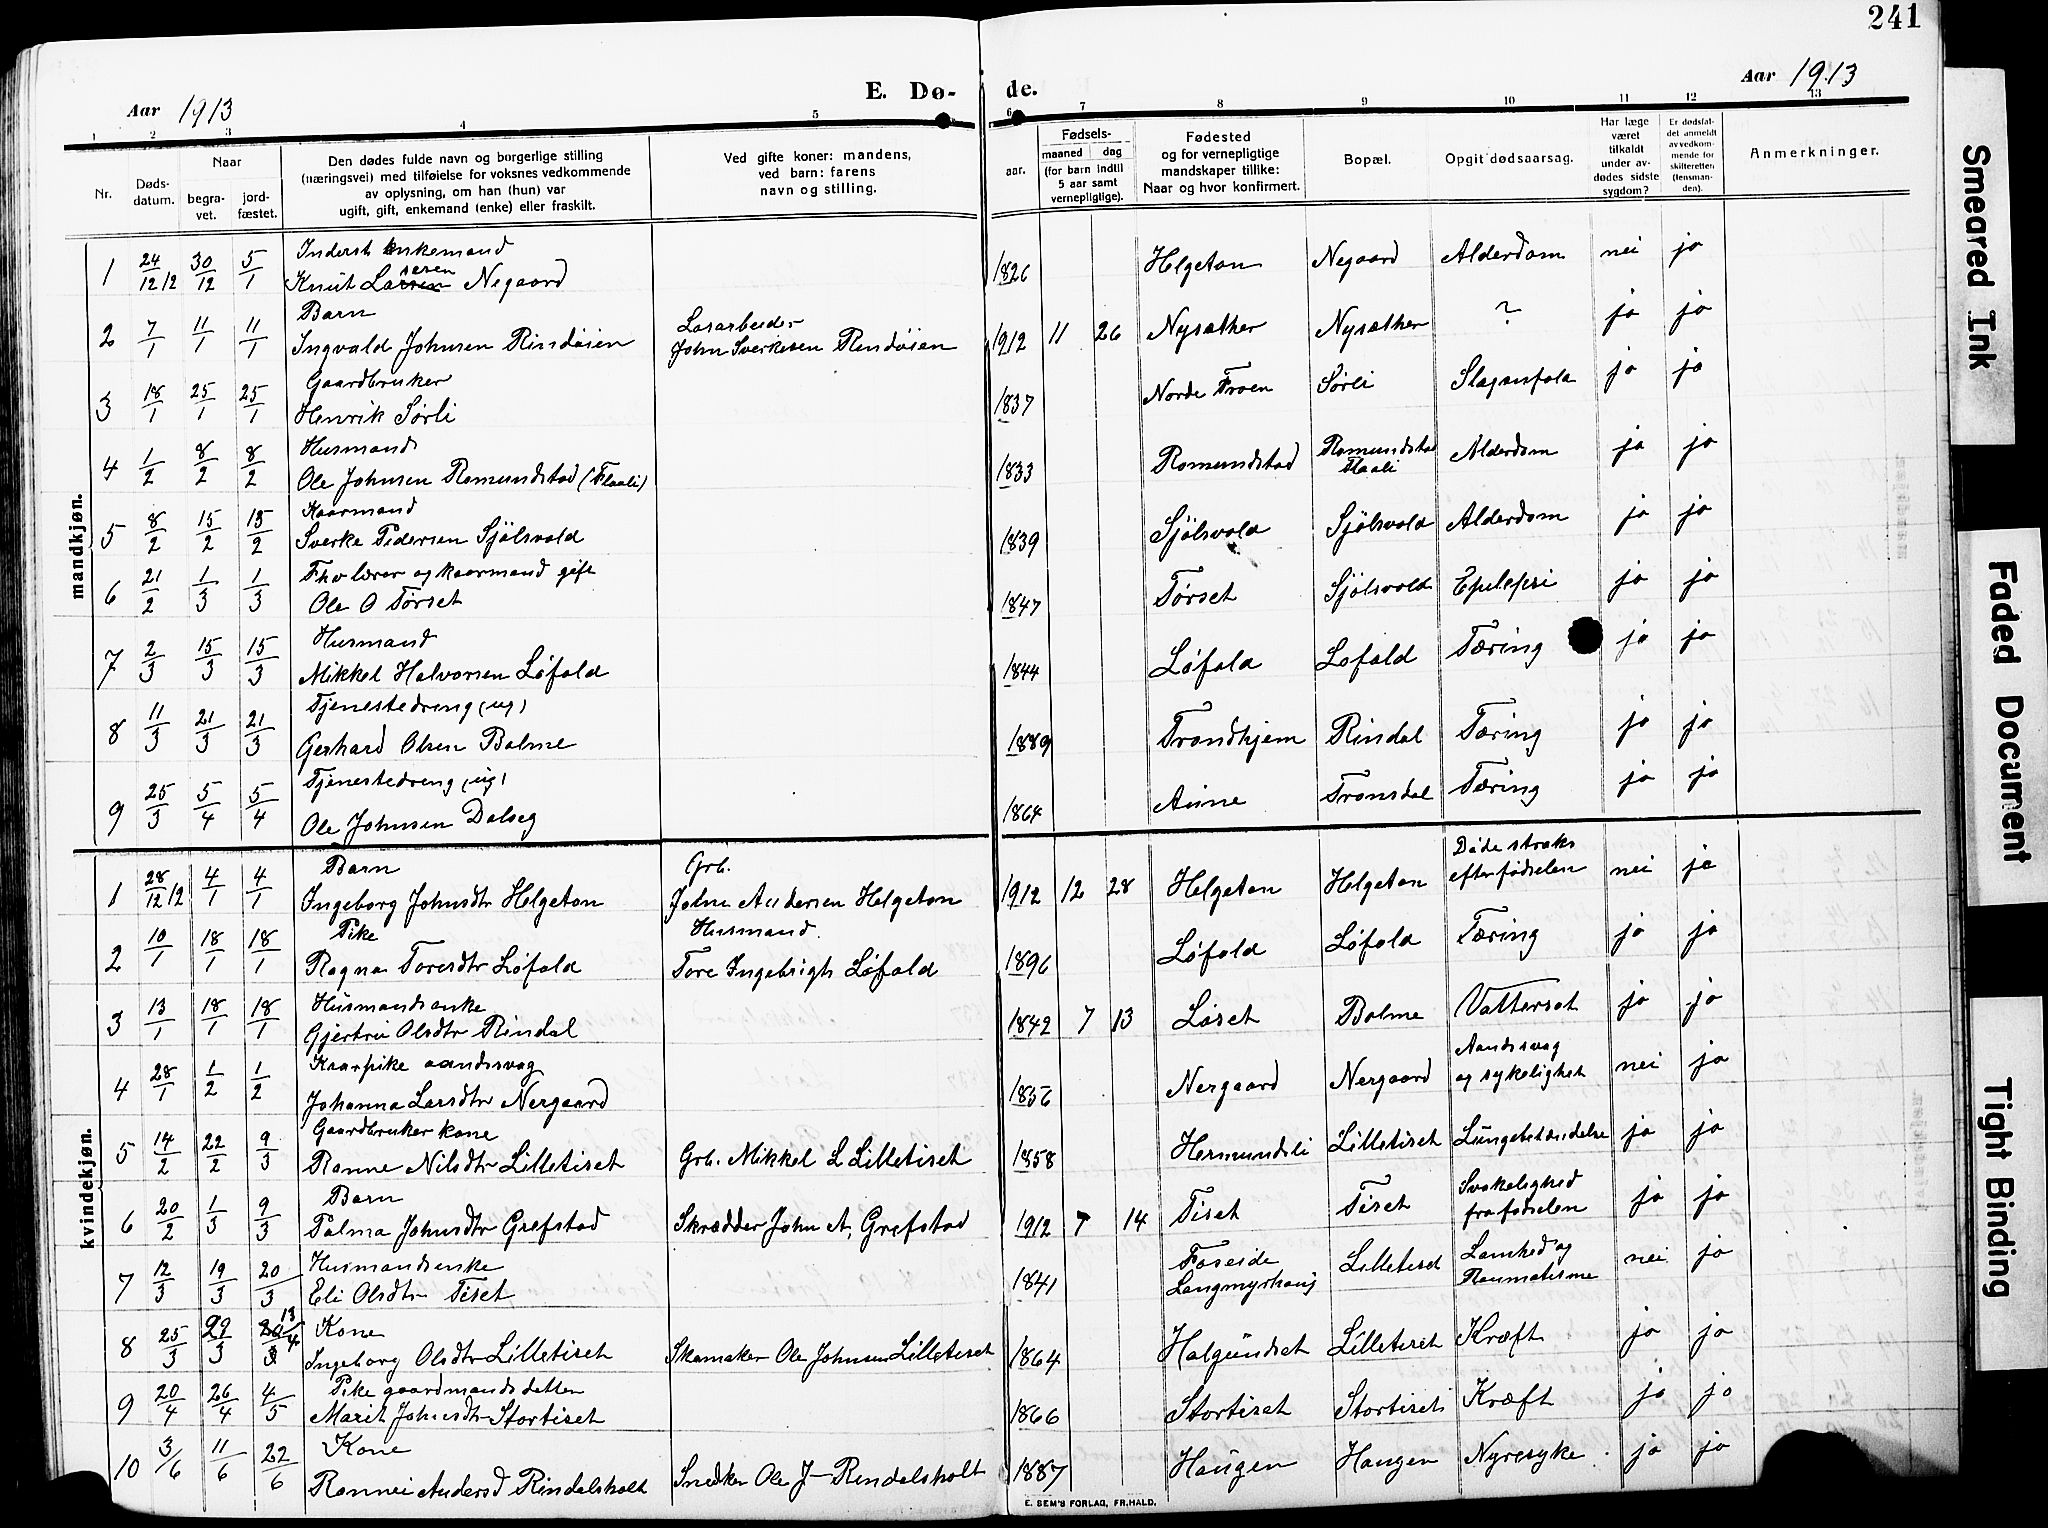 241
Aar 1913
E. Dø-
de.
Aar 1913
1 2 3 4 5 6 7 8 9 10 11 12 13
Nr.
Døds-
datum.
Naar
begra-
vet.
jord-
fæstet.
Den dødes fulde navn og borgerlige stilling
(næringsvei) med tilføielse for voksnes vedkommende
av oplysning, om han (hun) var
ugift, gift, enkemand (enke) eller fraskilt.
Ved gifte koner: mandens,
ved barn: farens
navn og stilling.
Fødsels-
aar.
maaned dag
(for barn indtil
5 aar samt
vernepligtige).
Fødested
og for vernepligtige
mandskaper tillike:
Naar og hvor konfirmert.
Bopæl.
Opgit dødsaarsag.
Har læge
været
tilkaldt
under av-
dødes sidste
sygdom?
Er dødsfal-
det anmeldt
av vedkom-
mende for
skifteretten
(lensman-
den).
Anmerkninger.
mandkjøn.
Inderst Enkemand
1 24/12 12 30/12 5/1 Knut Larssen Negaard 1826 Helgeton Negaard Alderdom nei ja
Barn Løsarbeider
2 7/1 11/1 11/1 Ingvald Johnsen Rindøien John Sverkesen Rindøien 1912 11 26 Nysæther Nysæther ? ja ja
Gaardbruker
3 18/1 25/1 25/1 Henrik Sørli 1837 Nordre Froen Sørli Slaganfald ja ja
Husmand
4 1/2 8/2 8/2 Ole Johnsen Romundstad (Flaali) 1833 Romundstad Romundstad Flaali Alderdom ja ja
Kaarmand
5 8/2 15/2 15/2 Sverke Pedersen Sjølsvold 1839 Sjølsvold Sjølsvold Alderdom ja ja
Fhv lærer og kaarmand gift
6 21/2 1/3 1/3 Ole O Tørset 1847 Tørset Sjølsvold Epilepsi ja ja
Husmand
7 2/3 15/3 15/3 Mikkel Halvorsen Løfald 1844 Løfald Løfald Tæring ja ja
Tjenestedreng (ug)
8 11/3 21/3 21/3 Gerhard Olsen Bolme 1889 Trondhjem Rindal Tæring ja ja
Tjenestedreng (ug)
9 25/3 5/4 5/4 Ole Johnsen Dalseg 1864 Aune Tronsdal Tæring ja ja
kvindekjøn.
Barn Grb. Døde straks
1 28/12 12 4/1 4/1 Ingeborg Johnsdtr Helgeton John Andersen Helgeton 1912 12 28 Helgeton Helgeton efter fødselen nei ja
Pike Husmand.
2 10/1 18/1 18/1 Ragna Toresdtr Løfald Tore Ingebrigts Løfald 1896 Løfald Løfald Tæring ja ja
Husmandsenke
3 13/1 18/1 18/1 Gjertru Olsdtr Rindal 1842 7 13 Løset Bolme Vattersot ja ja
Kaarpike aandssvag Aandssvag
4 28/1 1/2 1/2 Johanna Larsdtr Nergaard 1836 Nergaard Nergaard og sykelighet nei ja
Gaardbruker kone
5 14/2 22/2 9/3 Ranne Nilsdtr Lilletiset Grb. Mikkel L Lilletiset 1858 Hermundsli Lilletiset Lungebetændelse ja ja
Barn Svakelighed
6 20/2 1/3 9/3 Palma Johnsdtr Grefstad Skrædder John A. Grefstad 1912 7 14 Tiset Tiset fra fødselen ja ja
Husmandsenke Foseide Lamhed og
7 12/3 19/3 20/3 Eli Olsdtr Tiset 1841 Langmyrhaug Lilletiset Raumatisme nei ja
Kone
8 25/3 29/3 13/4 Ingeborg Olsdtr Lilletiset Skomaker Ole Johnsen Lilletiset 1864 Halgundset Lilletiset Kræft ja ja
Pike gaardmandsdatter
9 20/4 26/4 4/5 Marit Johnsdtr Stortiset 1866 Stortiset Stortiset Kræft ja ja
Kone
10 3/6 11/6 22/6 Rannei Andersd Rindalsholt Snedker Ole J- Rindalsholt 1887 Haugen Haugen Nyresyke ja ja
E. SEM'S FORLAG, FR.HALD.
Smeared Ink
Faded Document
Tight Binding